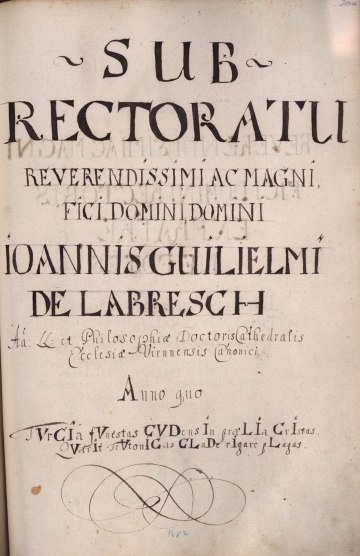 ~ SUB ~
RECTORATU
REVERENDISSIMI AC MAGNI.
FICI. DOMINI, DOMINI
IOANNIS GUILIELMI
DE LABRESCH
et Philosophiæ Doctoris Cathedralis
Ecclesiæ Viennensis Canonici
Anno quo
TVrCIa fVnestas CVDens In prœLIa CrIstas
QVærIt teVtonICas CLaDe rIgare pLagas.